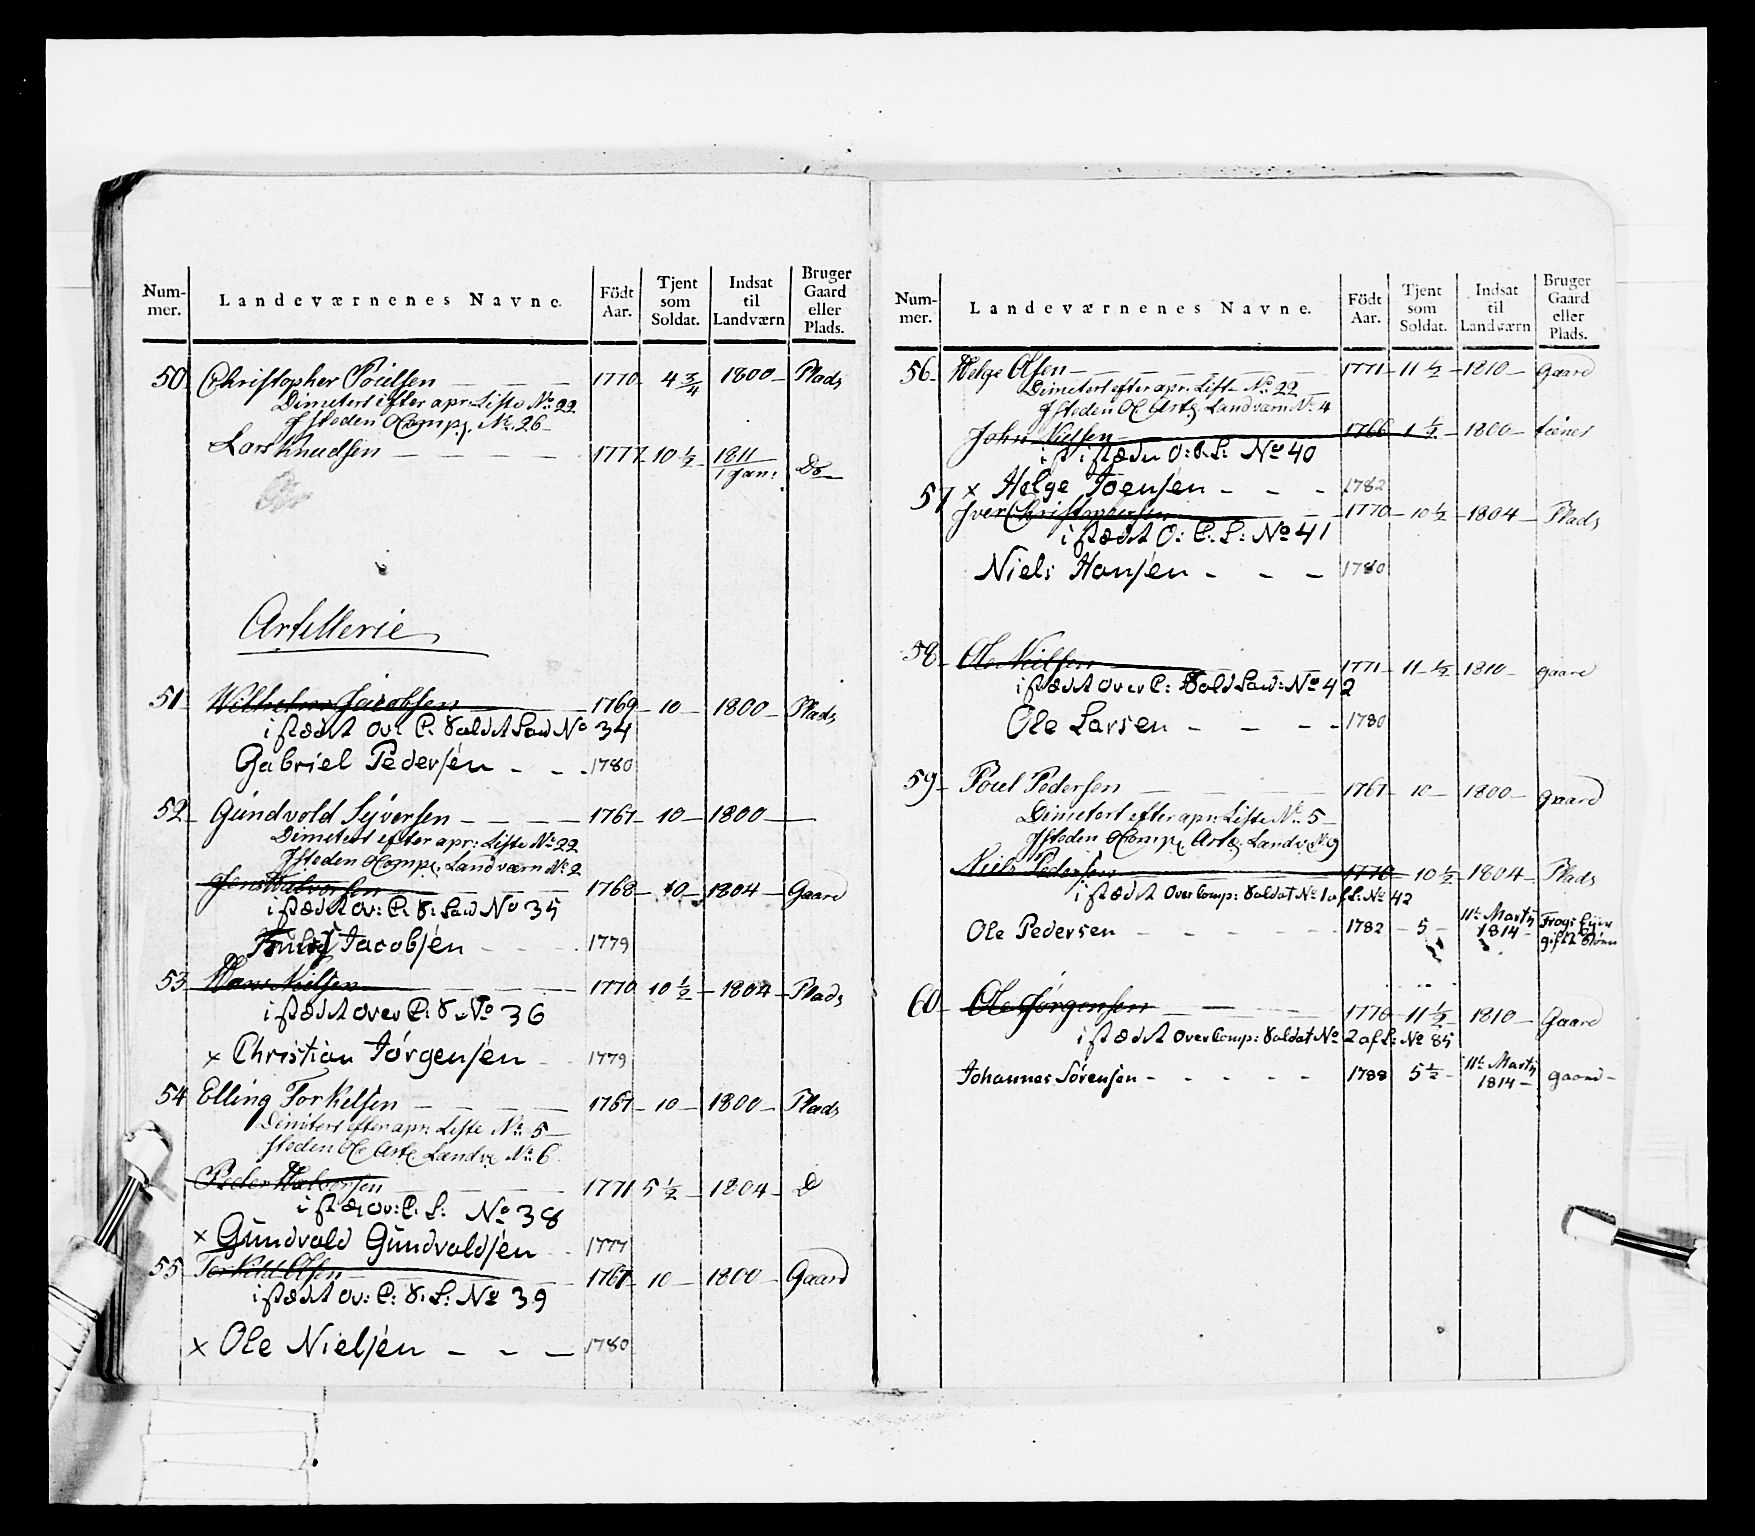 Num- mer. Landeværnenes Navne. Födt Aar. Tjent som Soldat. Indsat til Landværn Bruger Gaard eller Plads.
50 Christopher Poulsen 1770 4 3/4 1800 Plads
Dimetert efter apr: Liste No 22
Isteden Comp. No. 26
Lars Knudsen 1777 10 1/2 1811 1 Jan: Do
Artillerie
51 Wilhelm Jacobsen 1769 10 1800 Plads
istædt ov: C: Soldat Law No 34
Gabriel Pedersen 1780
52 Gundvold Syversen 1767 10 1800
Dimetert efter apr: Liste No 22
Isteden Comp. Landværn No 2
Jens Halvorsen 1768 10 1804 Gaard
istædt ov: C: S: Law No 35
Jacobsen 1779
53 Hans Nielsen 1770 10 1/2 1804 Plads
istædt over C: S No 36
x Christian Jörgensen 1779
54 Elling Torkelsen 1767 10 1800 Plads
Dimitert efter apr: Liste No 5
Isteden Art. Landv. No 6
Peder Halvorsen 1771 5 1/2 1804 D
i stæd ov: C: L: No 38
x Gundvald Gundvaldsen 1777
55 Torkild Olsen 1767 10 1800 Gaard
istædt ov: C: S: L: No 39
x Ole Nielsen 1780
Num- mer. Landeværnenes Navne. Födt Aar. Tjent som Soldat. Indsat til Landværn Bruger Gaard eller Plads.
56 Helge Olsen 1771 11 1/2 1810 Gaard
Dimetert efter apr: Liste No 22
Isteden Art. Landværn No 4
John Nielsen 1766 1 1/2 1800 tiener
istæden O: C: L: No 40
x Helge Toensen 1782
57 Iver Christophersen 1770 10 1/2 1804 Plads
istædt O: C: L: No 41
Niels Hansen 1780
58 Ole Nielsen 1771 11 1/2 1810 gaard
istædt over C: Sold Law: No 42
Ole Larsen 1780
59 Poul Pedersen 1767 10 1800 gaard
Dimetert efter apr: Liste No 5
Isteden Comp. Art. Landv. No 9
Niels Pedersen 1770 10 1/2 1804 Plads
istædt Over Comp: Soldat No 1 af L: No 42
Ole Pedersen 1782 5 11te Martz 1814
60 Ole Jörgensen 1770 11 1/2 1810 Gaard
istædt Over Comp: Soldat No 2 af L: No 85
Johannes Sörensen 1788 5 1/2 11te Martz 1814 gaard